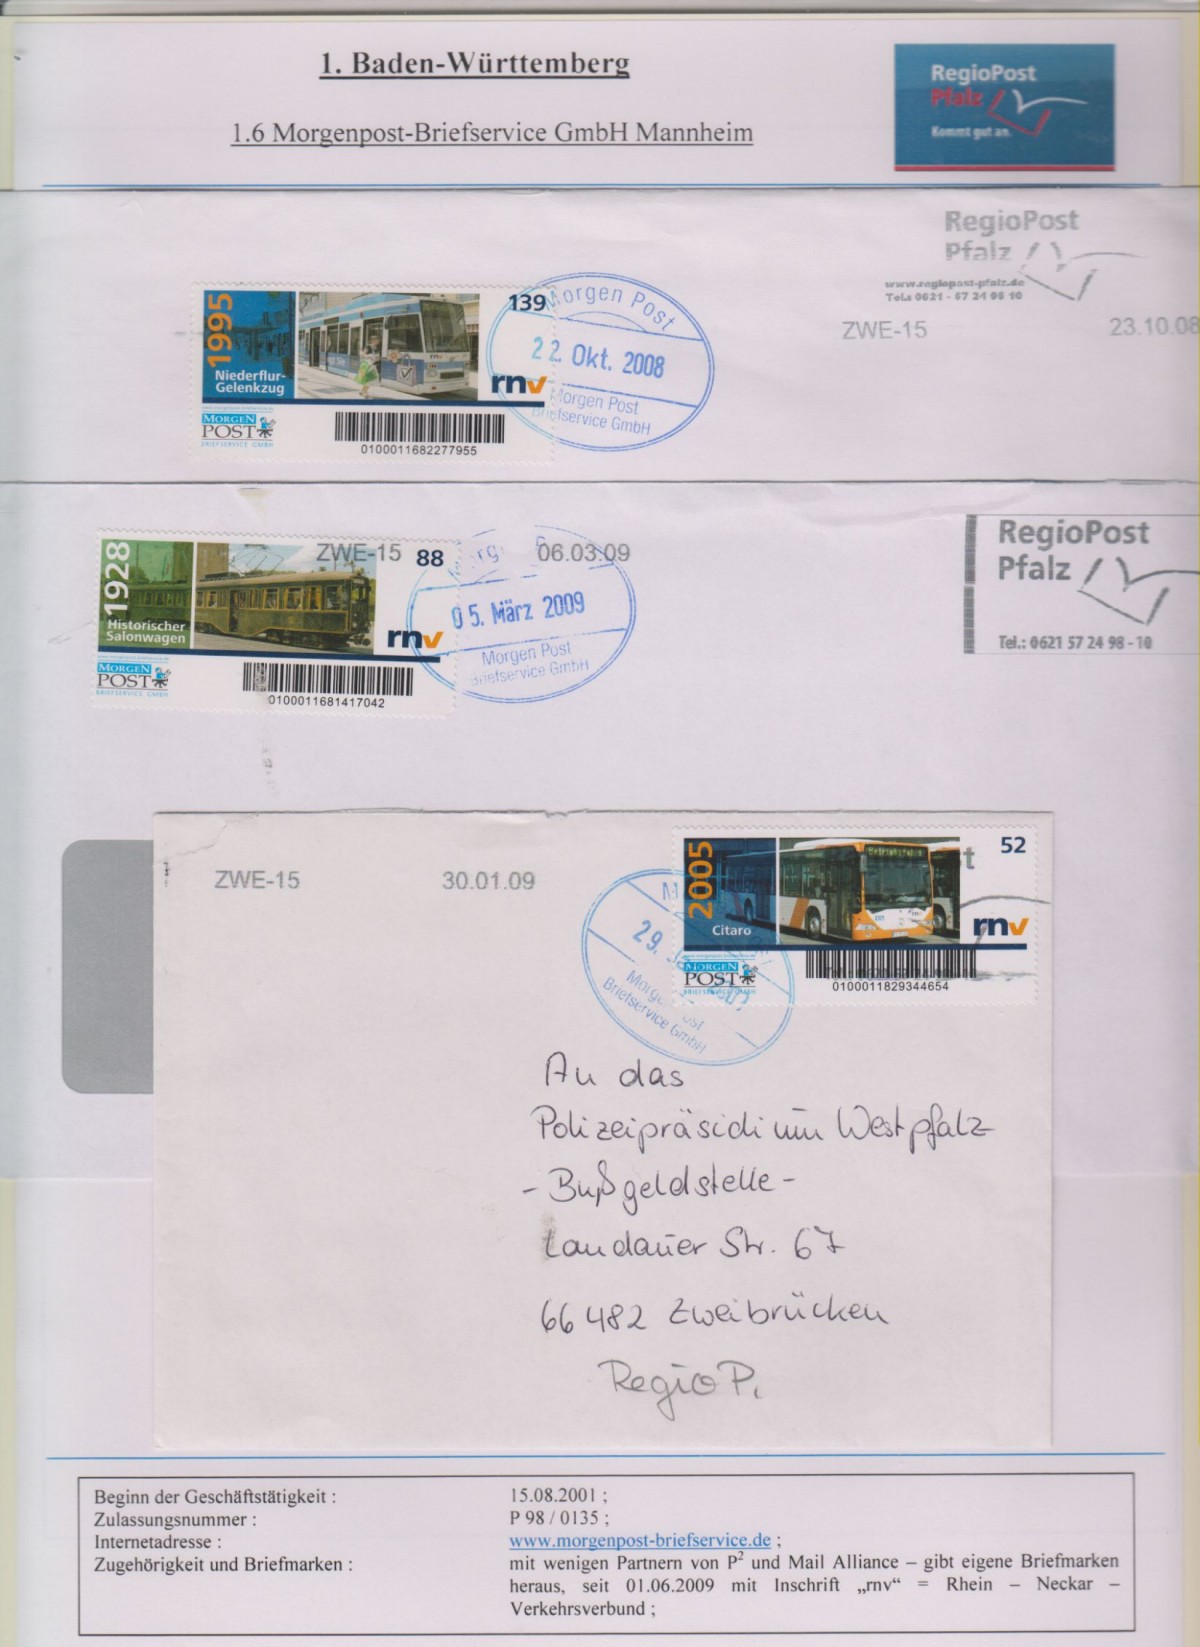 1. Baden-Württemberg
1.6 Morgenpost-Briefservice GmbH Mannheim
RegioPost
Pfalz
Kommt gut an.
RegioPost
Pfalz
www.regiopost-pfalz.de
Tel.: 0621 - 57 24 98 10
ZWE-15 23.10.08
1995
Niederflur-
Gelenkzug
139
rnv
MORGEN
POST
BRIEFSERVICE GMBH
0100011682277955
Morgen Post
22. Okt. 2008
Morgen Post
Briefservice GmbH
RegioPost
Pfalz
Tel.: 0621 57 24 98 - 10
ZWE-15 06.03.09
1928
Historischer
Salonwagen
88
rnv
MORGEN
POST
BRIEFSERVICE GMBH
0100011681417042
05. März 2009
Morgen Post
Briefservice GmbH
ZWE-15 30.01.09
2005
Citaro
52
rnv
MORGEN
POST
BRIEFSERVICE GMBH
0100011829344654
29.
Briefservice GmbH
An das
Polizeipräsidium Westpfalz
- Bußgeldstelle -
Landauer Str. 67
66482 Zweibrücken
RegioP.
Beginn der Geschäftstätigkeit : 15.08.2001 ;
Zulassungsnummer : P 98 / 0135 ;
Internetadresse : www.morgenpost-briefservice.de ;
Zugehörigkeit und Briefmarken : mit wenigen Partnern von P² und Mail Alliance – gibt eigene Briefmarken
heraus, seit 01.06.2009 mit Inschrift „rnv“ = Rhein – Neckar –
Verkehrsverbund ;